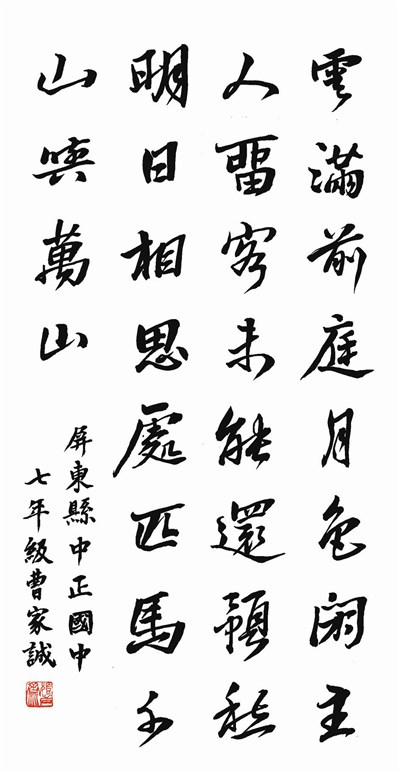 雪滿前庭月色閒主
人畱客未能還預愁
明日相思處匹馬千
山與萬山
屏東縣中正國中
七年級曹家誠